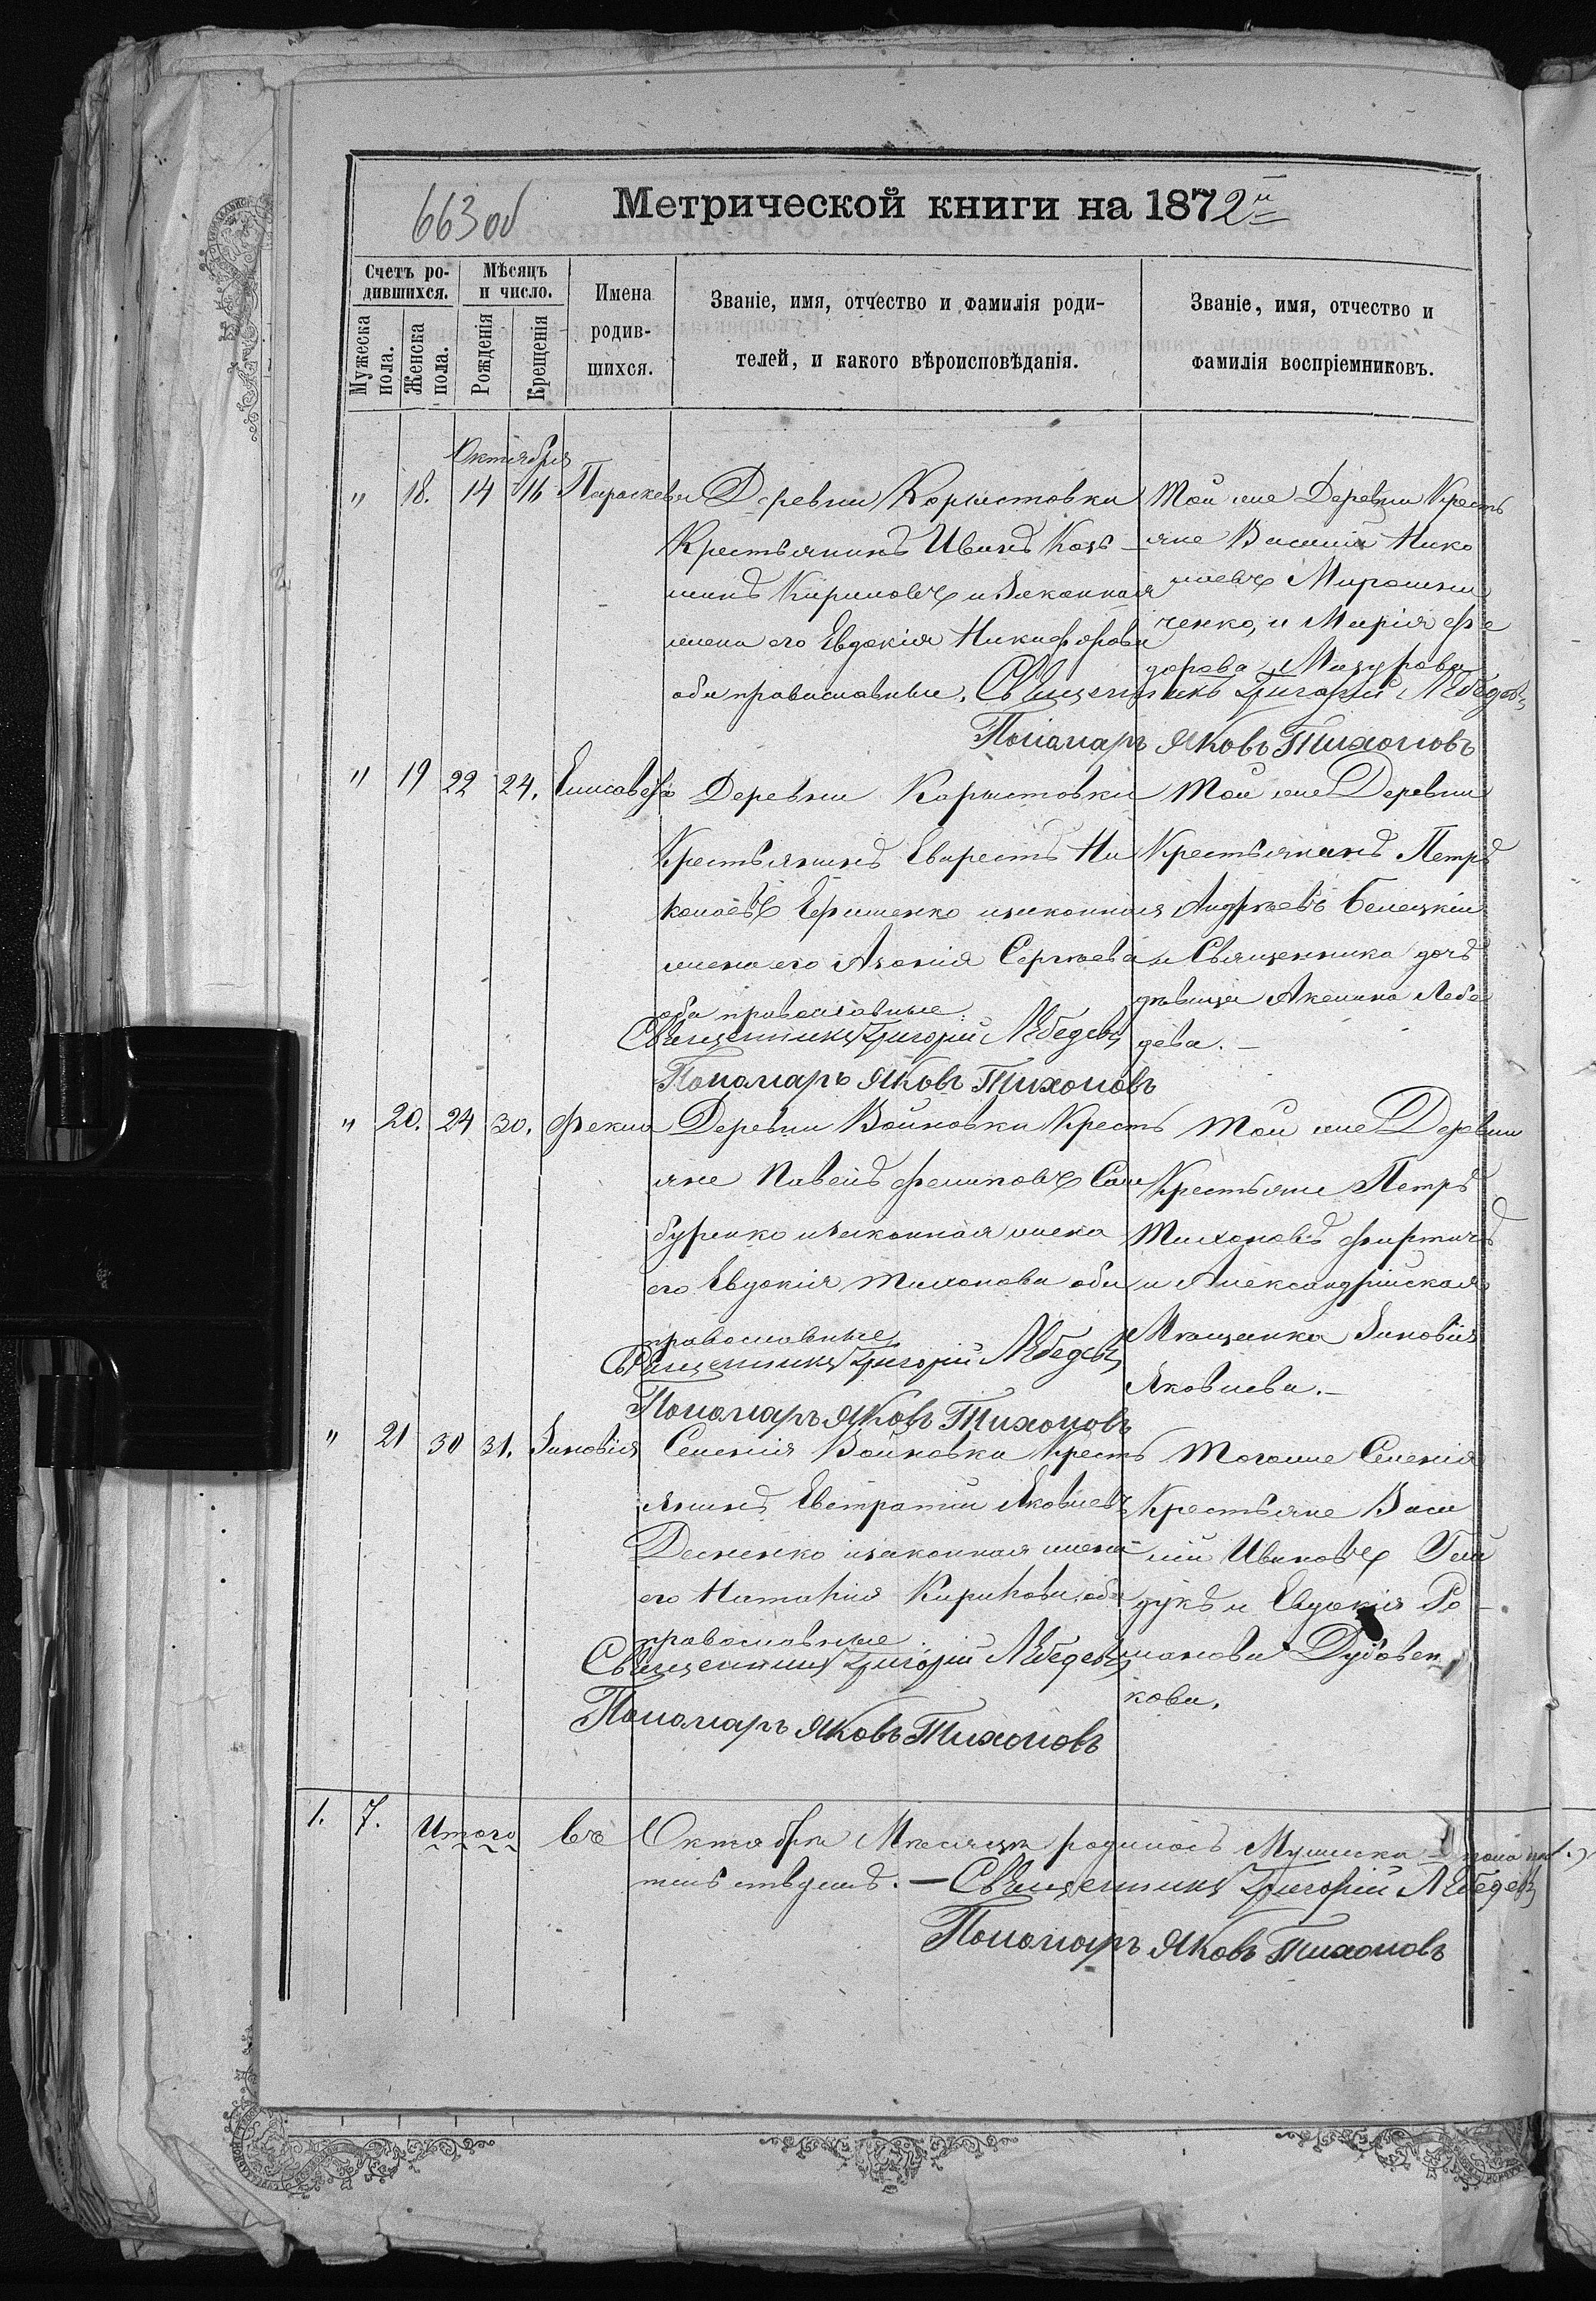 663 об
Метрической книги на 1872й
Счетъ ро-
дившихся.
Мужеска
пола.
Женска
пола.
Мѣсяцъ
и число.
Рожденія
Крещенія
Имена
родив-
шихся.
Званіе, имя, отчество и фамилія роди-
телей, и какого вѣроисповѣданія.
Званіе, имя, отчество и
фамилія воспріемниковъ.
Октября
" 18. 14 16 Параскева
Деревни Користовки
Крестьянинъ Иванъ Козь-
минъ Кириловъ и законная
жена его Евдокія Никифорова
оба православные.
Той же Деревни Кресть
яне Василій Нико
лаевъ Мирошни
ченко, и Марія Фе
дорова Мазурова
Священникъ Григорій Лебедевъ
Пономарь Яковъ Тихоновъ
" 19 22 24. Елисавета
Деревни Користовки
Крестьянинъ Еварестъ Ни
колаевъ Ефименко и законная
жена его Агафія Сергѣева
оба православные.
Священникъ Григорій Лебедевъ
Пономарь Яковъ Тихоновъ
Той же Деревни
Крестьянинъ Петръ
Андреевъ Белецкій
и Священника дочь
дѣвица Акилина Лебе
дева. –
" 20. 24 30. Фекла
Деревни Войновки Кресть
яне Павелъ Филиповъ Сам
буренко и законная жена
его Евдокія Тихонова оба
православные
Священникъ Григорій Лебедевъ
Пономарь Яковъ Тихоновъ
Той же Деревни
Крестьяне Петръ
Тихоновъ
и Александрійская
Мѣщанка Зиновія
Яковлева. –
" 21 30 31. Зиновія
Селенія Войновка Кресть
янинъ Евстратій Яковлевъ
Даненко и законная жена
его Наталія Кирилова, оба
православные
Священникъ Григорій Лебедевъ
Пономарь Яковъ Тихоновъ
Того же Селенія
Крестьяне Васи
лій Ивановъ Гай
дукъ и Евдокія Ро-
манова Дубовен
кова.
1. 7. Итого въ Октябрѣ Мѣсяцѣ родилось Мужеска
Священникъ Григорій Лебедевъ
Пономарь Яковъ Тихоновъ